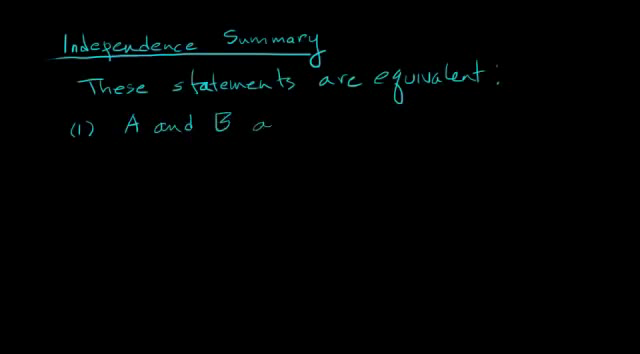 Independence Summary
These statements are equivalent:
(1) A and B a